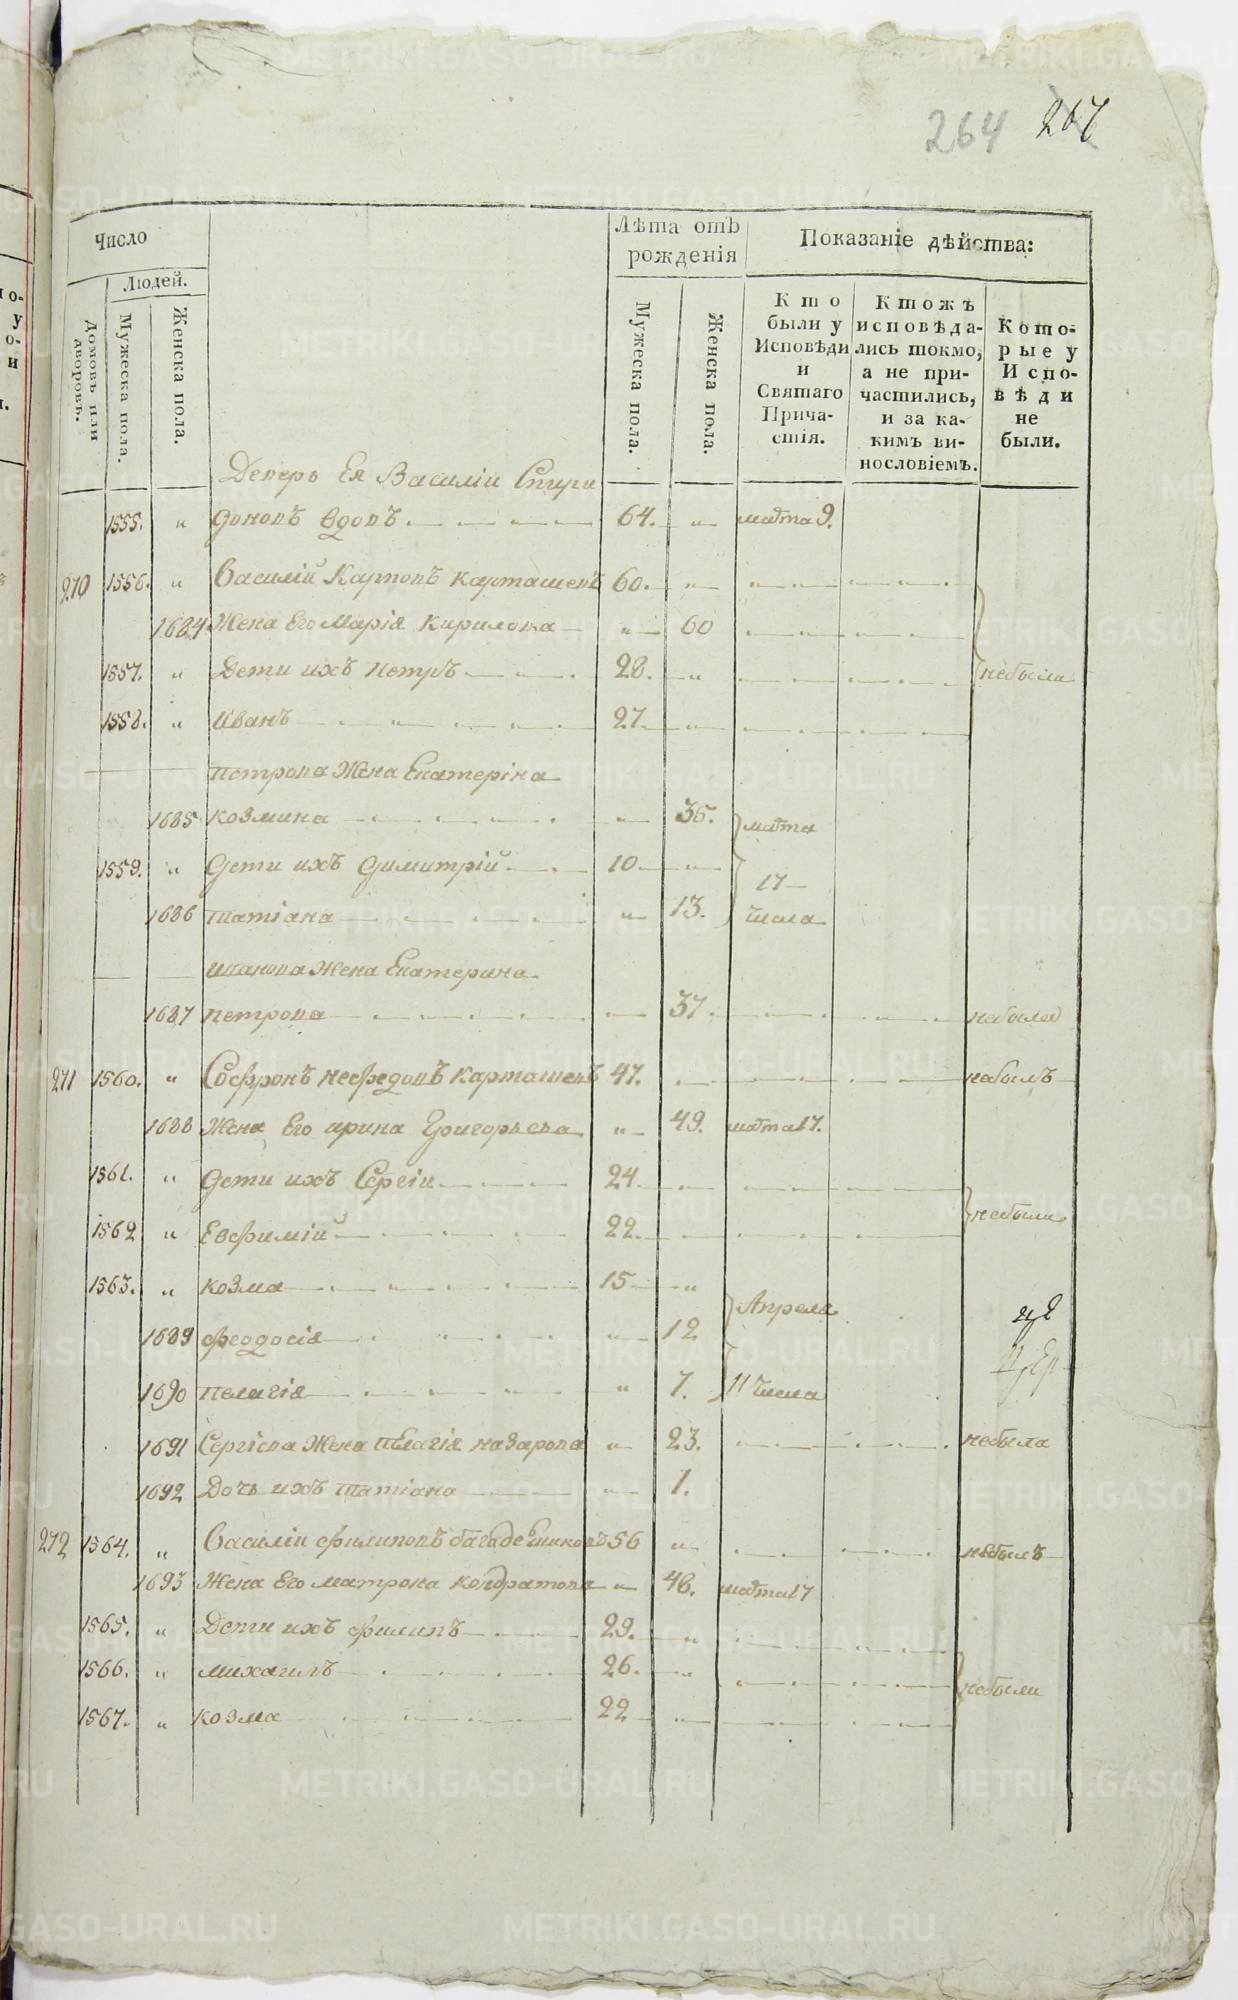 264 267
Число
Людей.
Домовъ или дворовъ.
Мужеска пола.
Женска пола.
Лѣта отъ рожденія
Мужеска пола.
Женска пола.
Показаніе дѣйства:
Кто были у Исповѣди и Святаго Причастія.
Ктожъ исповѣдались токмо, а не причастились, и за какимъ винословіемъ.
Которые у Исповѣди не были.
Деверь Ея Василіи
1555. " доновъ вдовъ 64. " марта 9.
270 1556. " Василій Карповъ Карташевъ 60. "
1684 Жена Его Марія Кирилова " 60
1557. " Дети ихъ Петръ 28. " небыли
1558. " Иванъ 27.
Петрова Жена Екатеріна
1685 Козмина " 35. марта
1559. " Дети ихъ Димитрій 10 " 17
1686 Татіана " 13. числа
Иванова Жена Екатерина
1687 Петрова 37.
271 1560. " Софронъ Нефедовъ Карташевъ 47. небылъ
1688 Жена Его Арина Григорьева " 49. марта 17.
1561. " Дети ихъ Сергіи 24
1562 " Евфимій 22. небыли
1563. " Козма 15 "
Апреля
1689 Феодосія " 12
1690 Пелагія " 7. 11 числа
1691 Сергіева Жена Пелагія Назарова " 23. небыла
1692 Дочь ихъ Татіана " 1.
272 1564. " Василіи Филиповъ 56 " небылъ
1693 Жена Его Матрона Кондратова " 46. марта 17
1565. " Дети ихъ Филипъ 29. "
1566. " Михаилъ 26. " небыли
1567. " Козма 22
METRIKI.GASO-URAL.RU